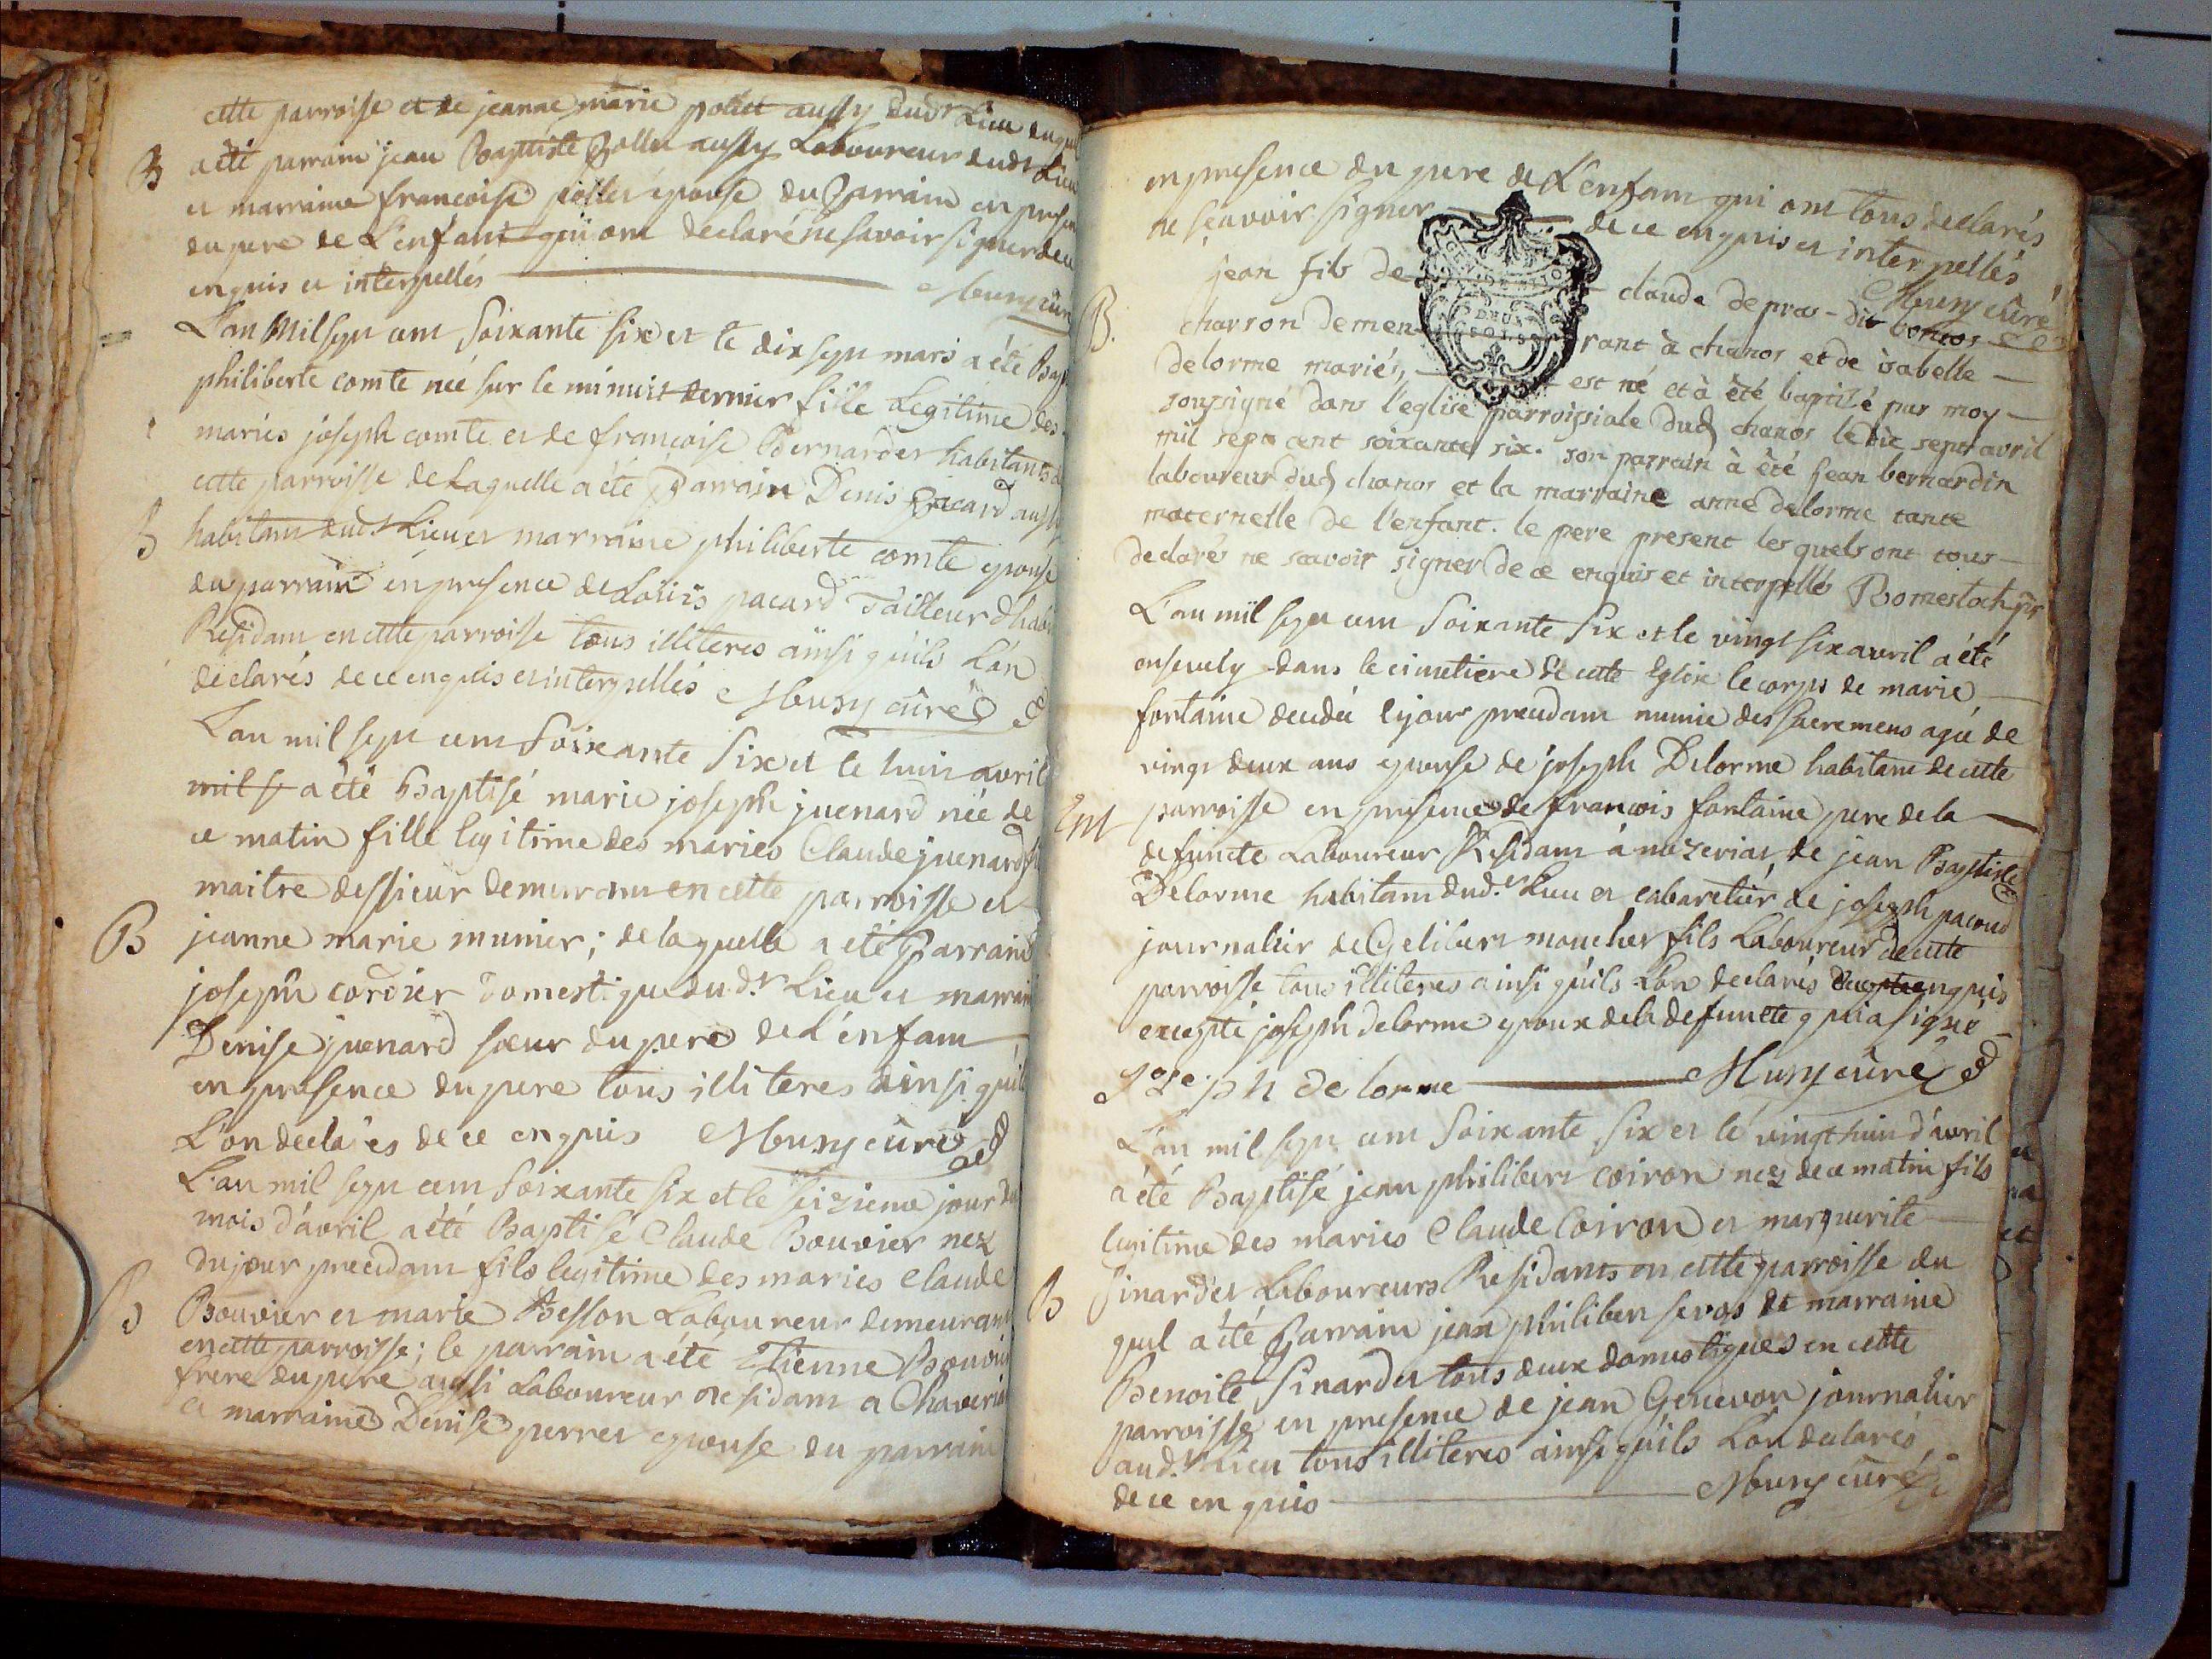 cette parroisse et de jeanne marie polet aussy dud.t Lieu duquel
B
a été parrain jean Baptiste Pollet aussy Laboureur dudt Lieu
et marraine francoise pollet epouse du Parrain en presen
du pere de L'enfant qui ont declaré ne savoir signer de ce
enquis et interpellés Muny curé
L'an Mil sept cent soixante six et le dix sept mars a été Bap
philiberte comte née sur le minuit dernier fille Legitime des
mariés joseph comte et de francoise Bernardet habitants d
cette parroisse de Laquelle a été Parrain Denis Pacard aussy
B
habitant dud.t Lieu et marraine philiberte comte epouse
du parrain en presence de Louis pacard Tailleur d'habi
Residant en cette parroisse tous illiteres ainsi qu'ils L'on
declarés de ce enquis et interpellés Muny curé
L'an mil sept cent soixante six et le huit avril
mil s a été Baptisé marie joseph juenard née de
ce matin fille legitime des mariés Claude juenard
maitre dessieur demeurant en cette parroisse et
B
jeanne marie munier; de laquelle a été Parrain
joseph cordier domestique du d.t Lieu et marrain
Denise juenard sœur du pere de L'enfant
en presence du pere tous illiteres ainsi qu'il
L'on declarés de ce enquis Muny curé
L'an mil sept cent soixante six et le seizieme jour du
mois d'avril a été Baptisé Claude Bouvier nez
du jour precedant fils legitime des mariés Claude
B
Bouvier et marie Besson Laboureur demeurant
en cette parroisse; le parrain a été Etienne Bouvier
frere du pere aussi Laboureur residant a Chaveria
et marraine Denise perret epouse du parrain
en presence du pere de L'enfant qui ont tous declarés
ne sçavoir signer de ce enquis et interpellés
Muny curé
B.
jean fils de claude de pras - dit
charron demeurant à chanos et de isabelle
DEUX SOLS
delorme mariés, est né et à été baptisé par moy
soussigné dans l'eglise parroissiale dud chanos le dix sept avril
mil sept cent soixante six. son parrain à été jean bernardin
laboureur dud chanos et la marraine anne delorme tante
maternelle de l'enfant. le pere present lesquels ont tous
declarés ne scavoir signer de ce enquis et interpellé
L'an mil sept cent soixante six et le vingt six avril a été
ensevely dans le cimetiere de cette Eglise le corps de marie
fontaine decedée le jour precedant munie des sacremens agée de
vingt deux ans epouse de joseph Delorme habitant de cette
Ent
parroisse en presence de francois fontaine pere de la
defuncte Laboureur Residant à nozeriat, de jean Baptiste
Delorme habitant dud.t Lieu et cabaretier de joseph pacoud
journalier de Gelibert moucher fils Laboureur de cette
parroisse tous illiteres ainsi qu'ils L'on declarés enquis
excepté joseph delorme epoux de la defuncte qui a signé
Joseph de lorme Muny curé
L'an mil sept cent soixante six et le vingt huit d'avril
a été Baptisé jean philibert coiron nez de ce matin fils
legitime des mariés Claude Coiron et marguerite
B
Sinardet Laboureurs Residants en cette parroisse du
quel a été Parrain jean philibert seros et marraine
Benoite Sinardet tous deux domestiques en cette
parroisse en presence de jean Genevon journalier
aud.t Lieu tous illiteres ainsi qu'ils L'on declarés
de ce enquis Muny curé